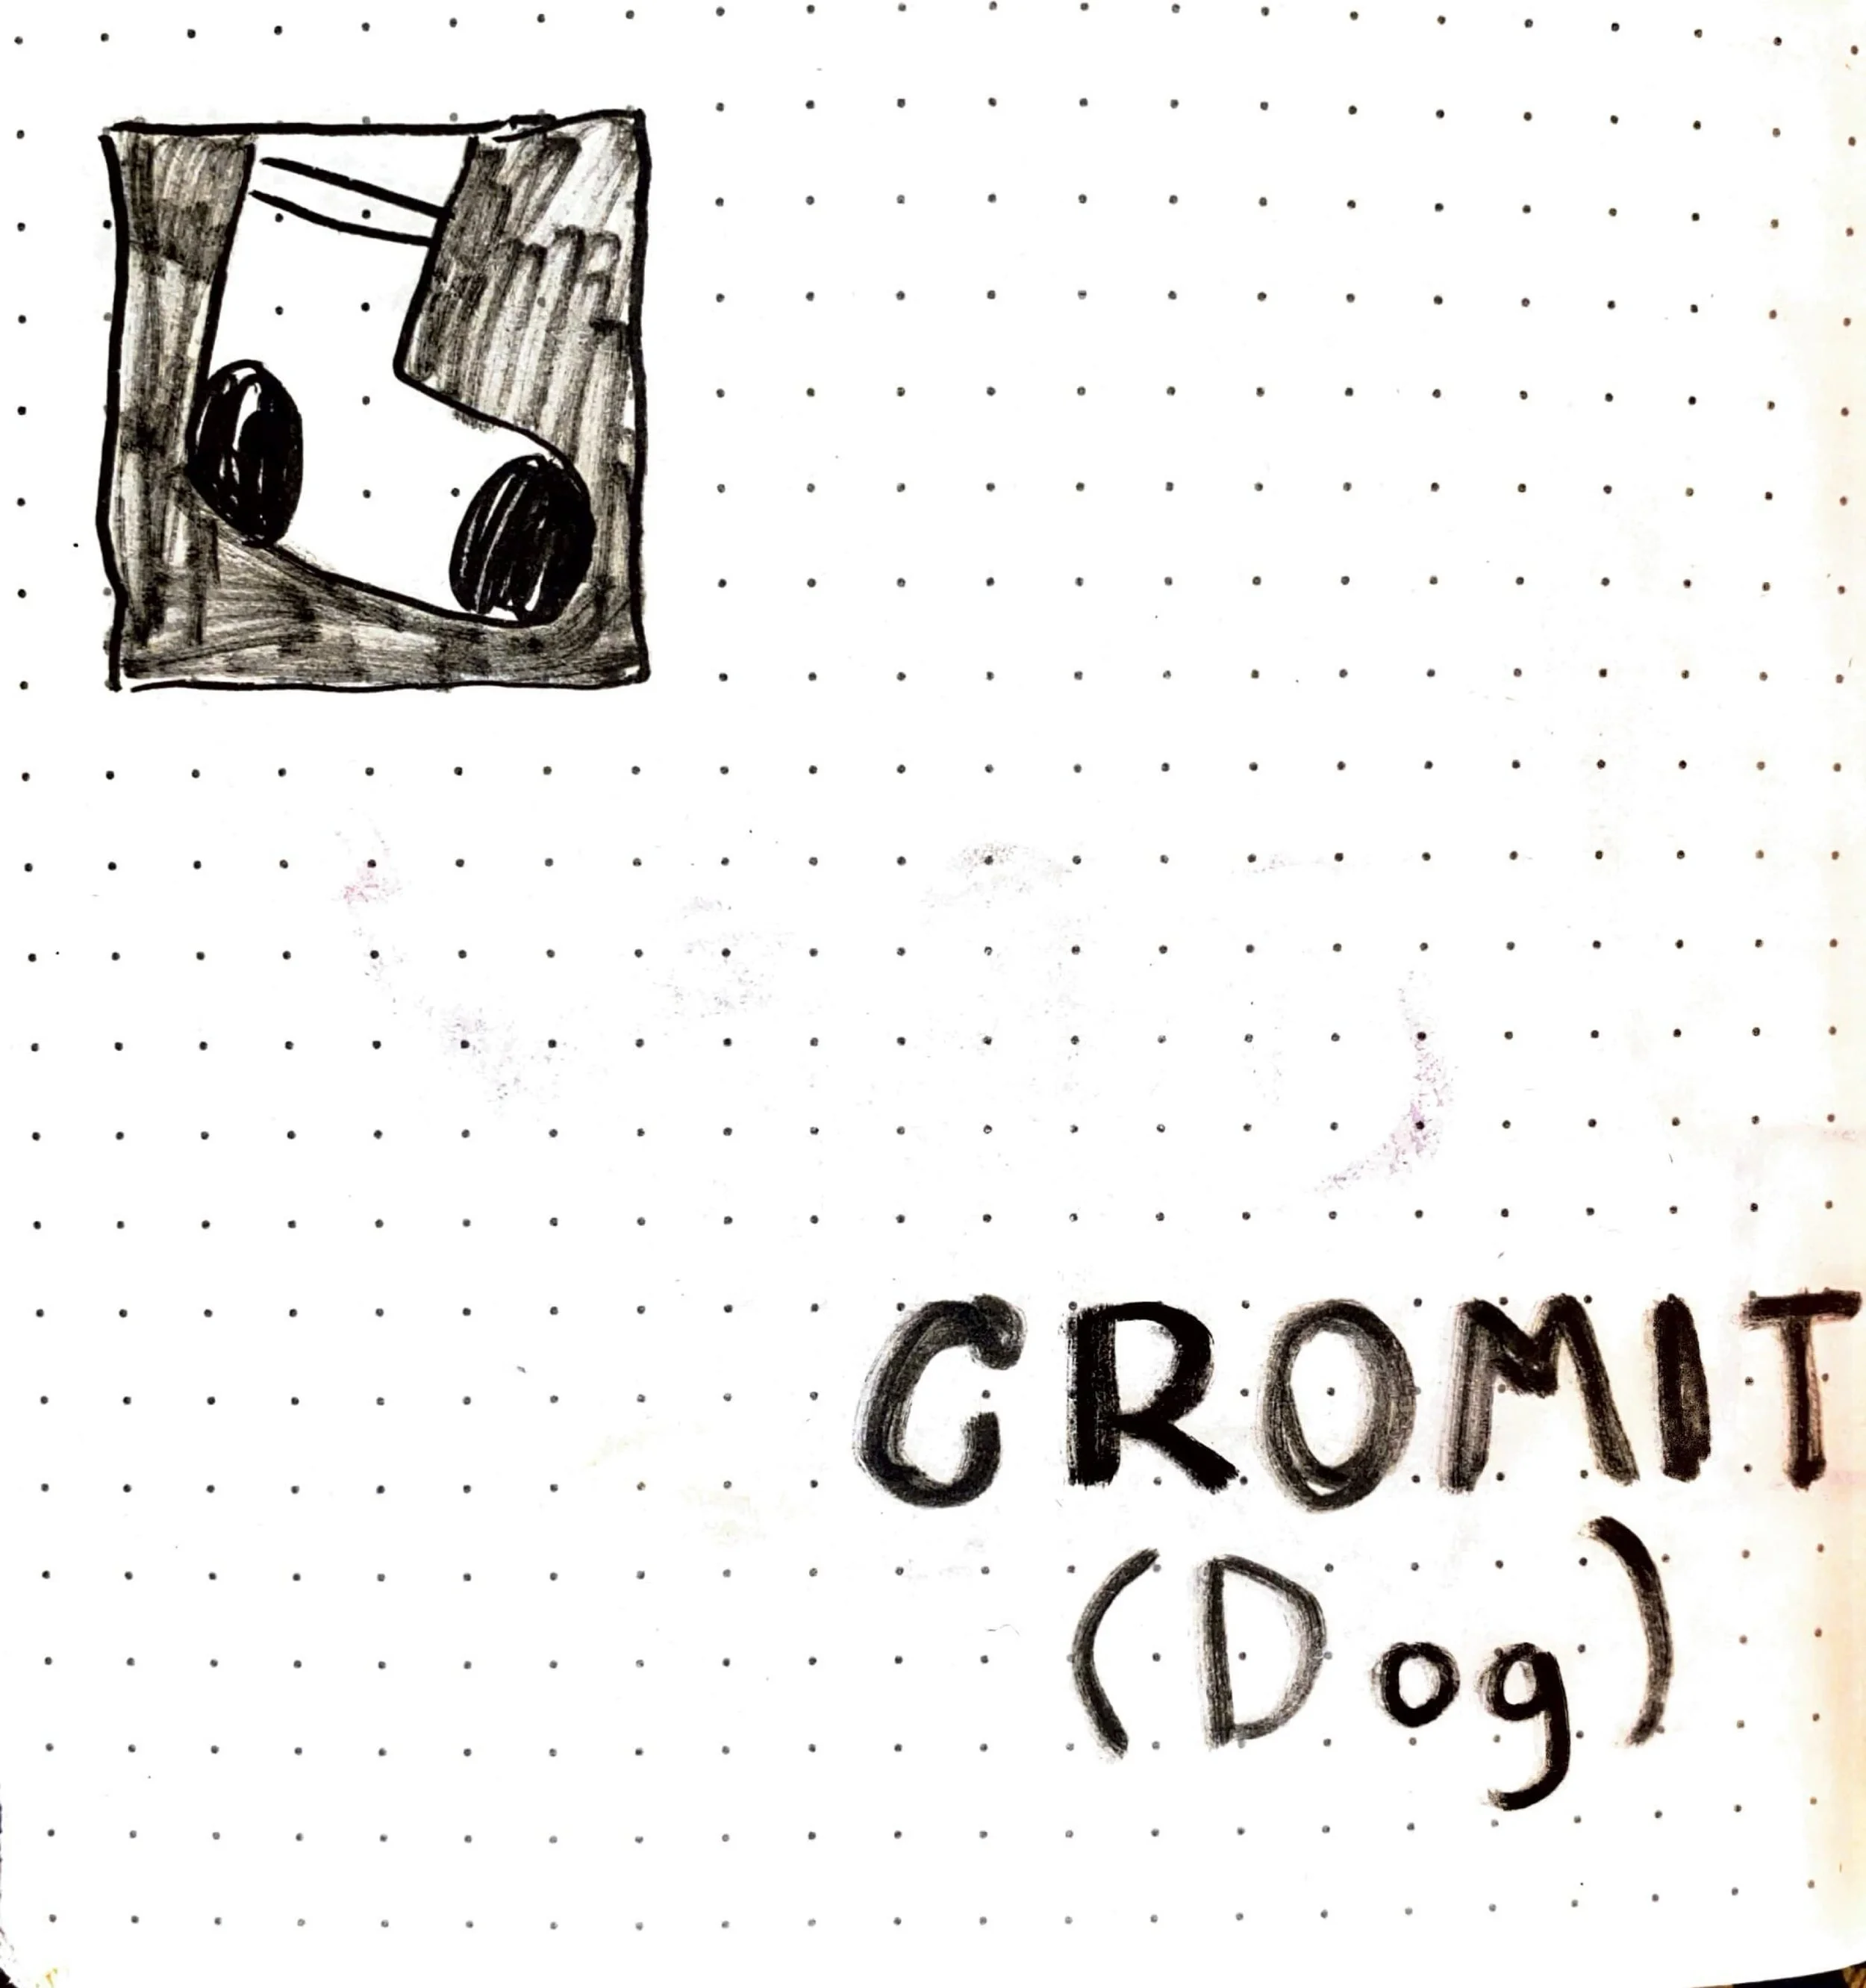 GROMIT
(Dog)